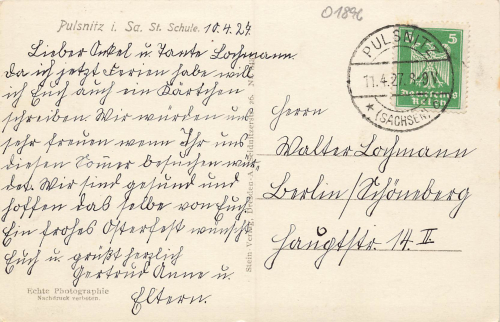 01896
Pulsnitz i. Sa. St. Schule. 10.4.27.
Lieber Onkel u. Tante Lochmann
da ich jetzt Ferien habe will
ich Euch auch ein Kärtchen
schreiben. Wir würden uns
sehr freuen wenn Ihr uns
diesen Sommer besuchen wür-
det. Wir sind gesund und
hoffen das selbe von Euch.
Ein frohes Osterfest wünscht
Euch u. grüßt herzlich
Gertrud Anne u.
Eltern.
Echte Photographie
Nachdruck verboten.
Stein Verlag, Dresden-A.
PULSNITZ
11.4.27. 8-9V.
* (SACHSEN)
5
Deutsches
Reich
Herrn
Walter Lochmann
Berlin/Schöneberg
Hauptstr. 14. II.